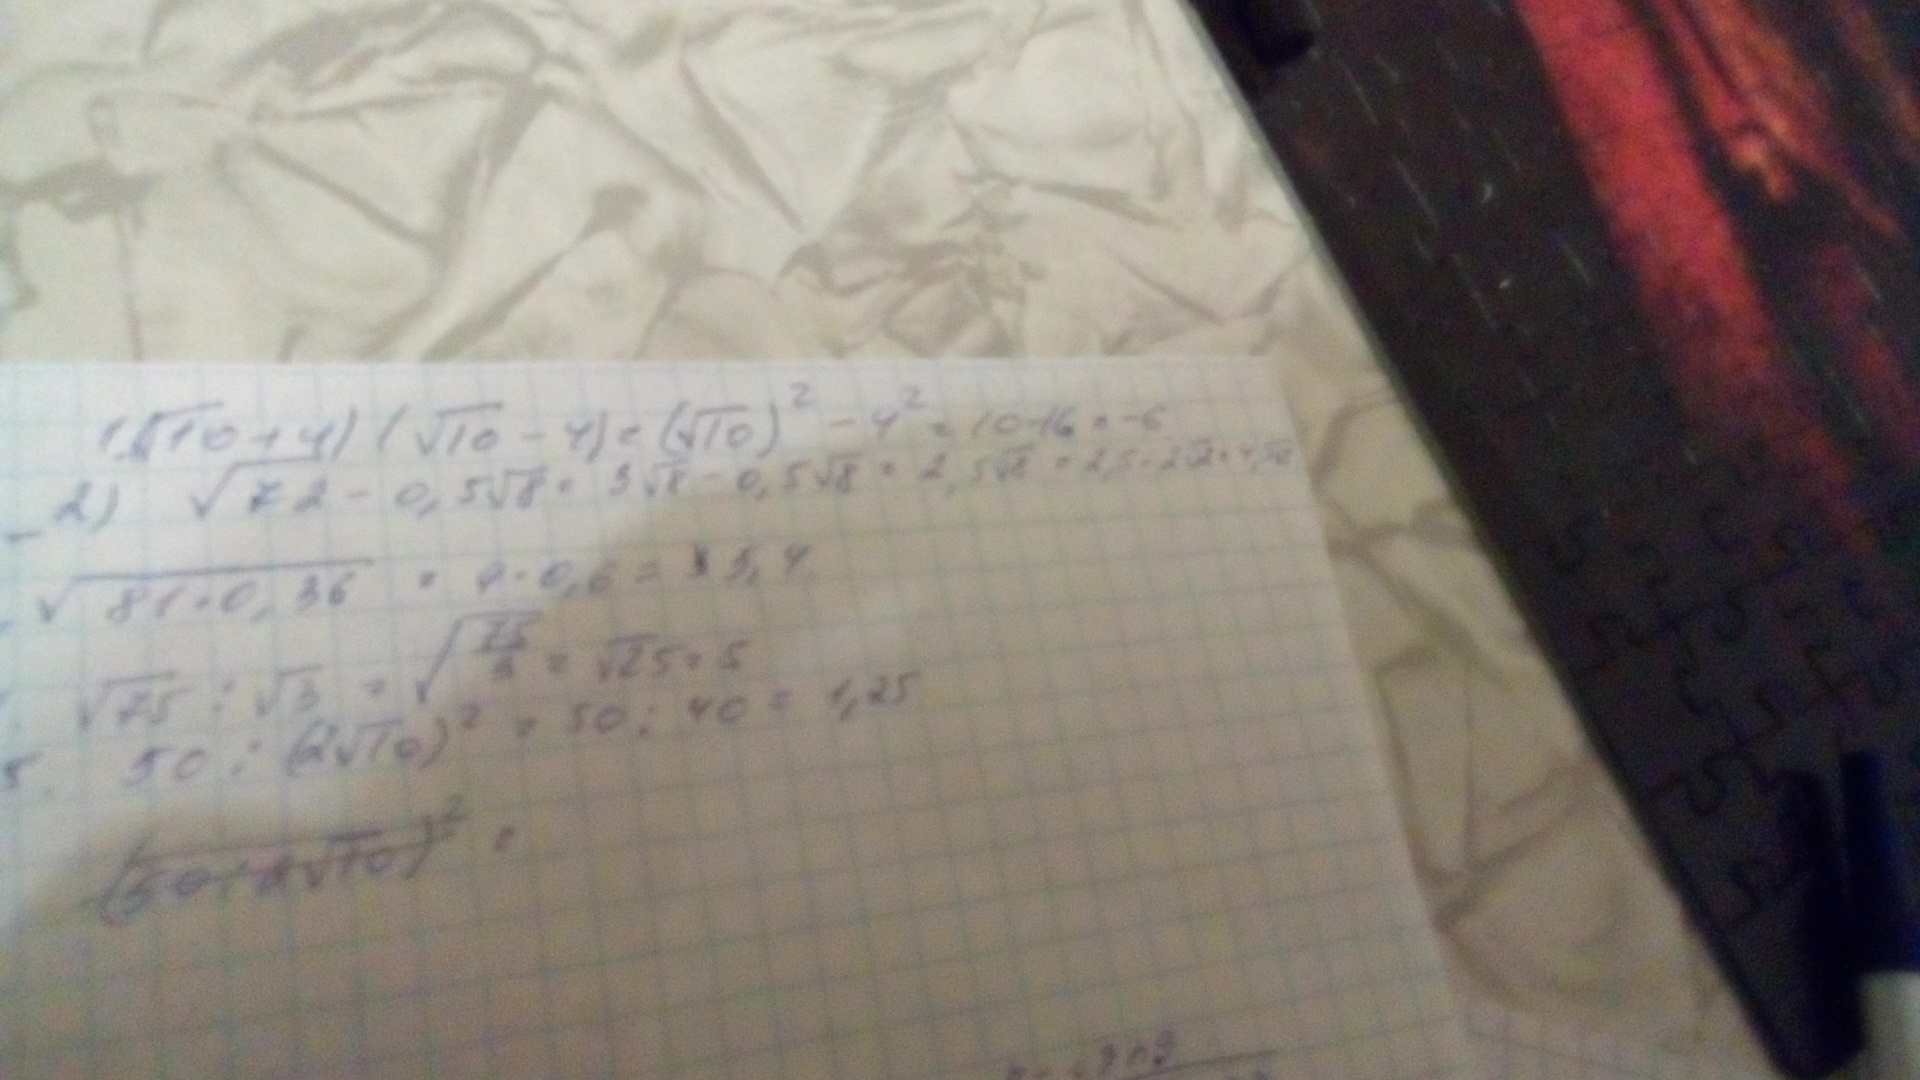 1. (√10+4)(√10-4)=(√10)²-4²=10-16=-6
2) √72-0,5√8=3√8-0,5√8=2,5√8=2,5·2√2=
√81·0,36=9·0,6=5,4
√75:√3=√75/3=√25=5
5. 50:(2√10)²=50:40=1,25